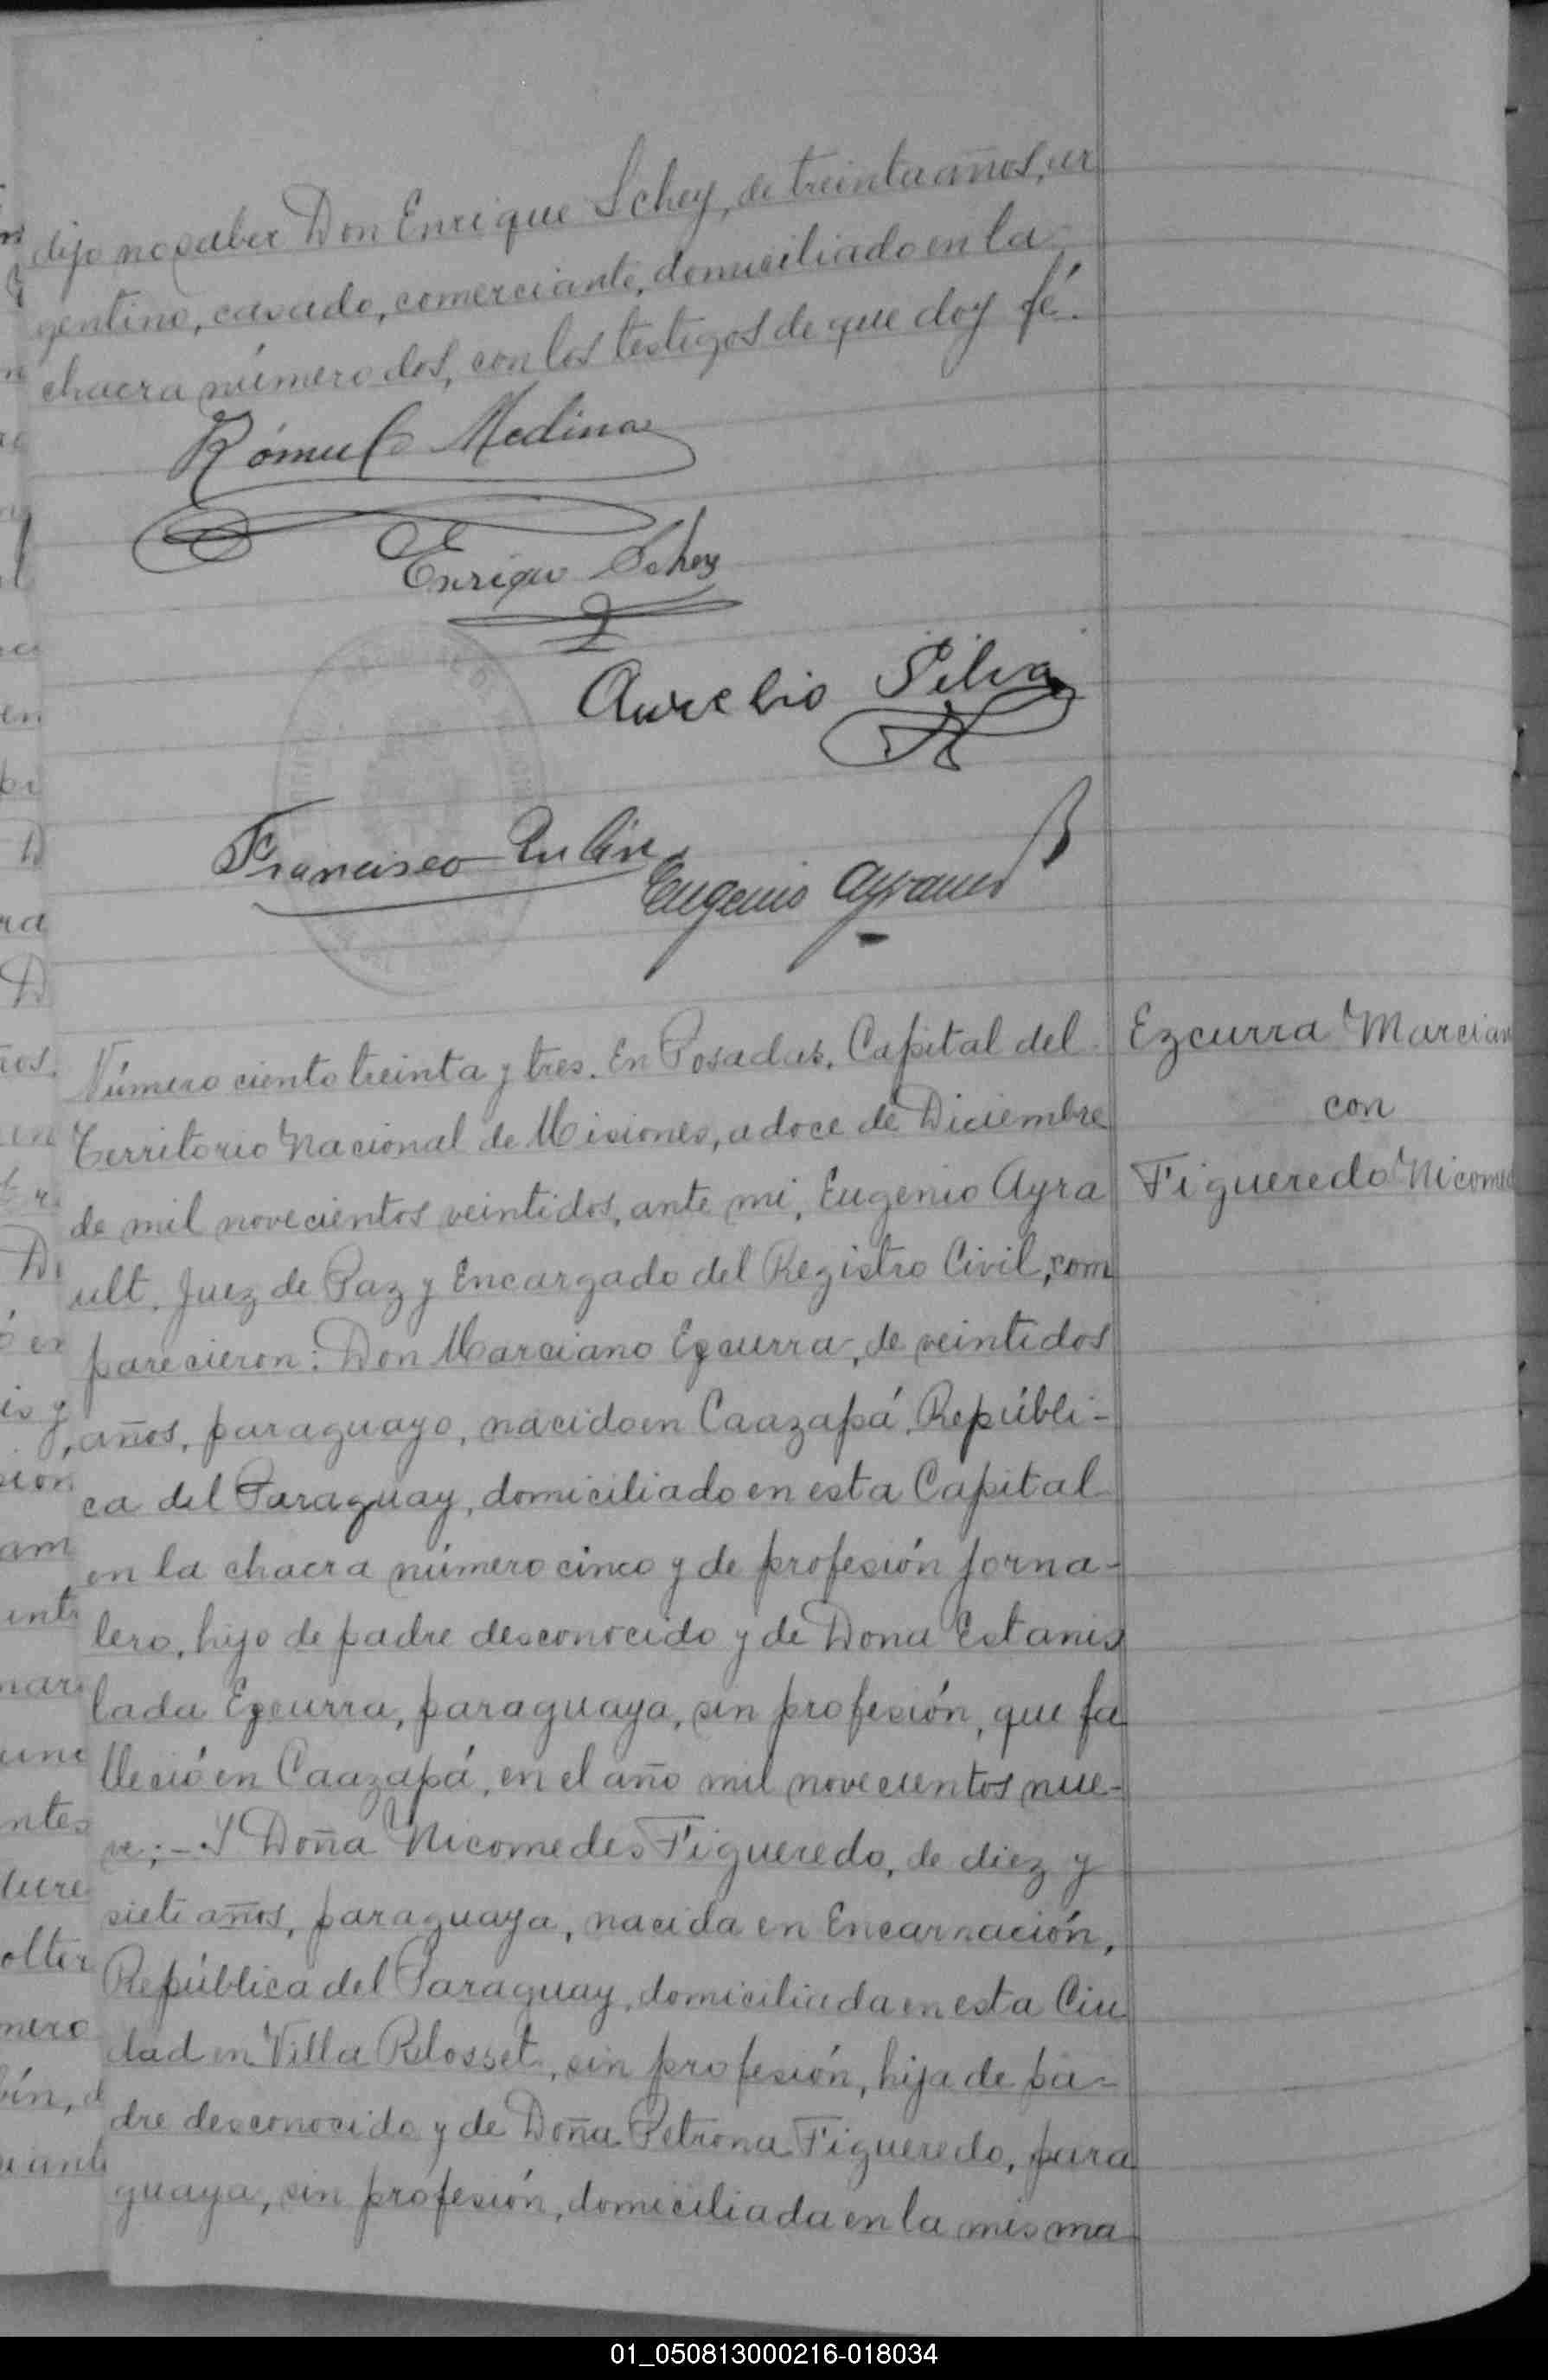 dijo no saber Don Enrique Schey, de treinta años, ar
gentino, casado, comerciante, domiciliado en la
chacra número dos, con los testigos de que doy fé.
Rómulo Medina
Enrique Schey
Aurelio Silva
Francisco
Eugenio Ayrault
Número ciento treinta y tres. En Posadas, Capital del
Territorio Nacional de Misiones, a doce de Diciembre
de mil novecientos veintidos, ante mi, Eugenio Ayra
ult, Juez de Paz y Encargado del Registro Civil, com
parecieron: Don Marciano Ezcurra, de veintidos
años, paraguayo, nacido en Caazapá, Repúbli-
ca del Paraguay, domiciliado en esta Capital
en la chacra número cinco y de profesión jorna-
lero, hijo de padre desconocido y de Dona Estanis
lada Ezcurra, paraguaya, sin profesión, que fa
lleció en Caazapá, en el año mil novecientos nue-
ve; - Y Doña Nicomedes Figueredo, de diez y
siete años, paraguaya, nacida en Encarnación,
República del Paraguay, domiciliada en esta Ciu
dad en Villa Blosset, sin profesión, hija de pa-
dre desconocido y de Doña Petrona Figueredo, para
guaya, sin profesión, domiciliada en la misma
Ezcurra Marcian
con
Figueredo Nicomed
01_050813000216-018034